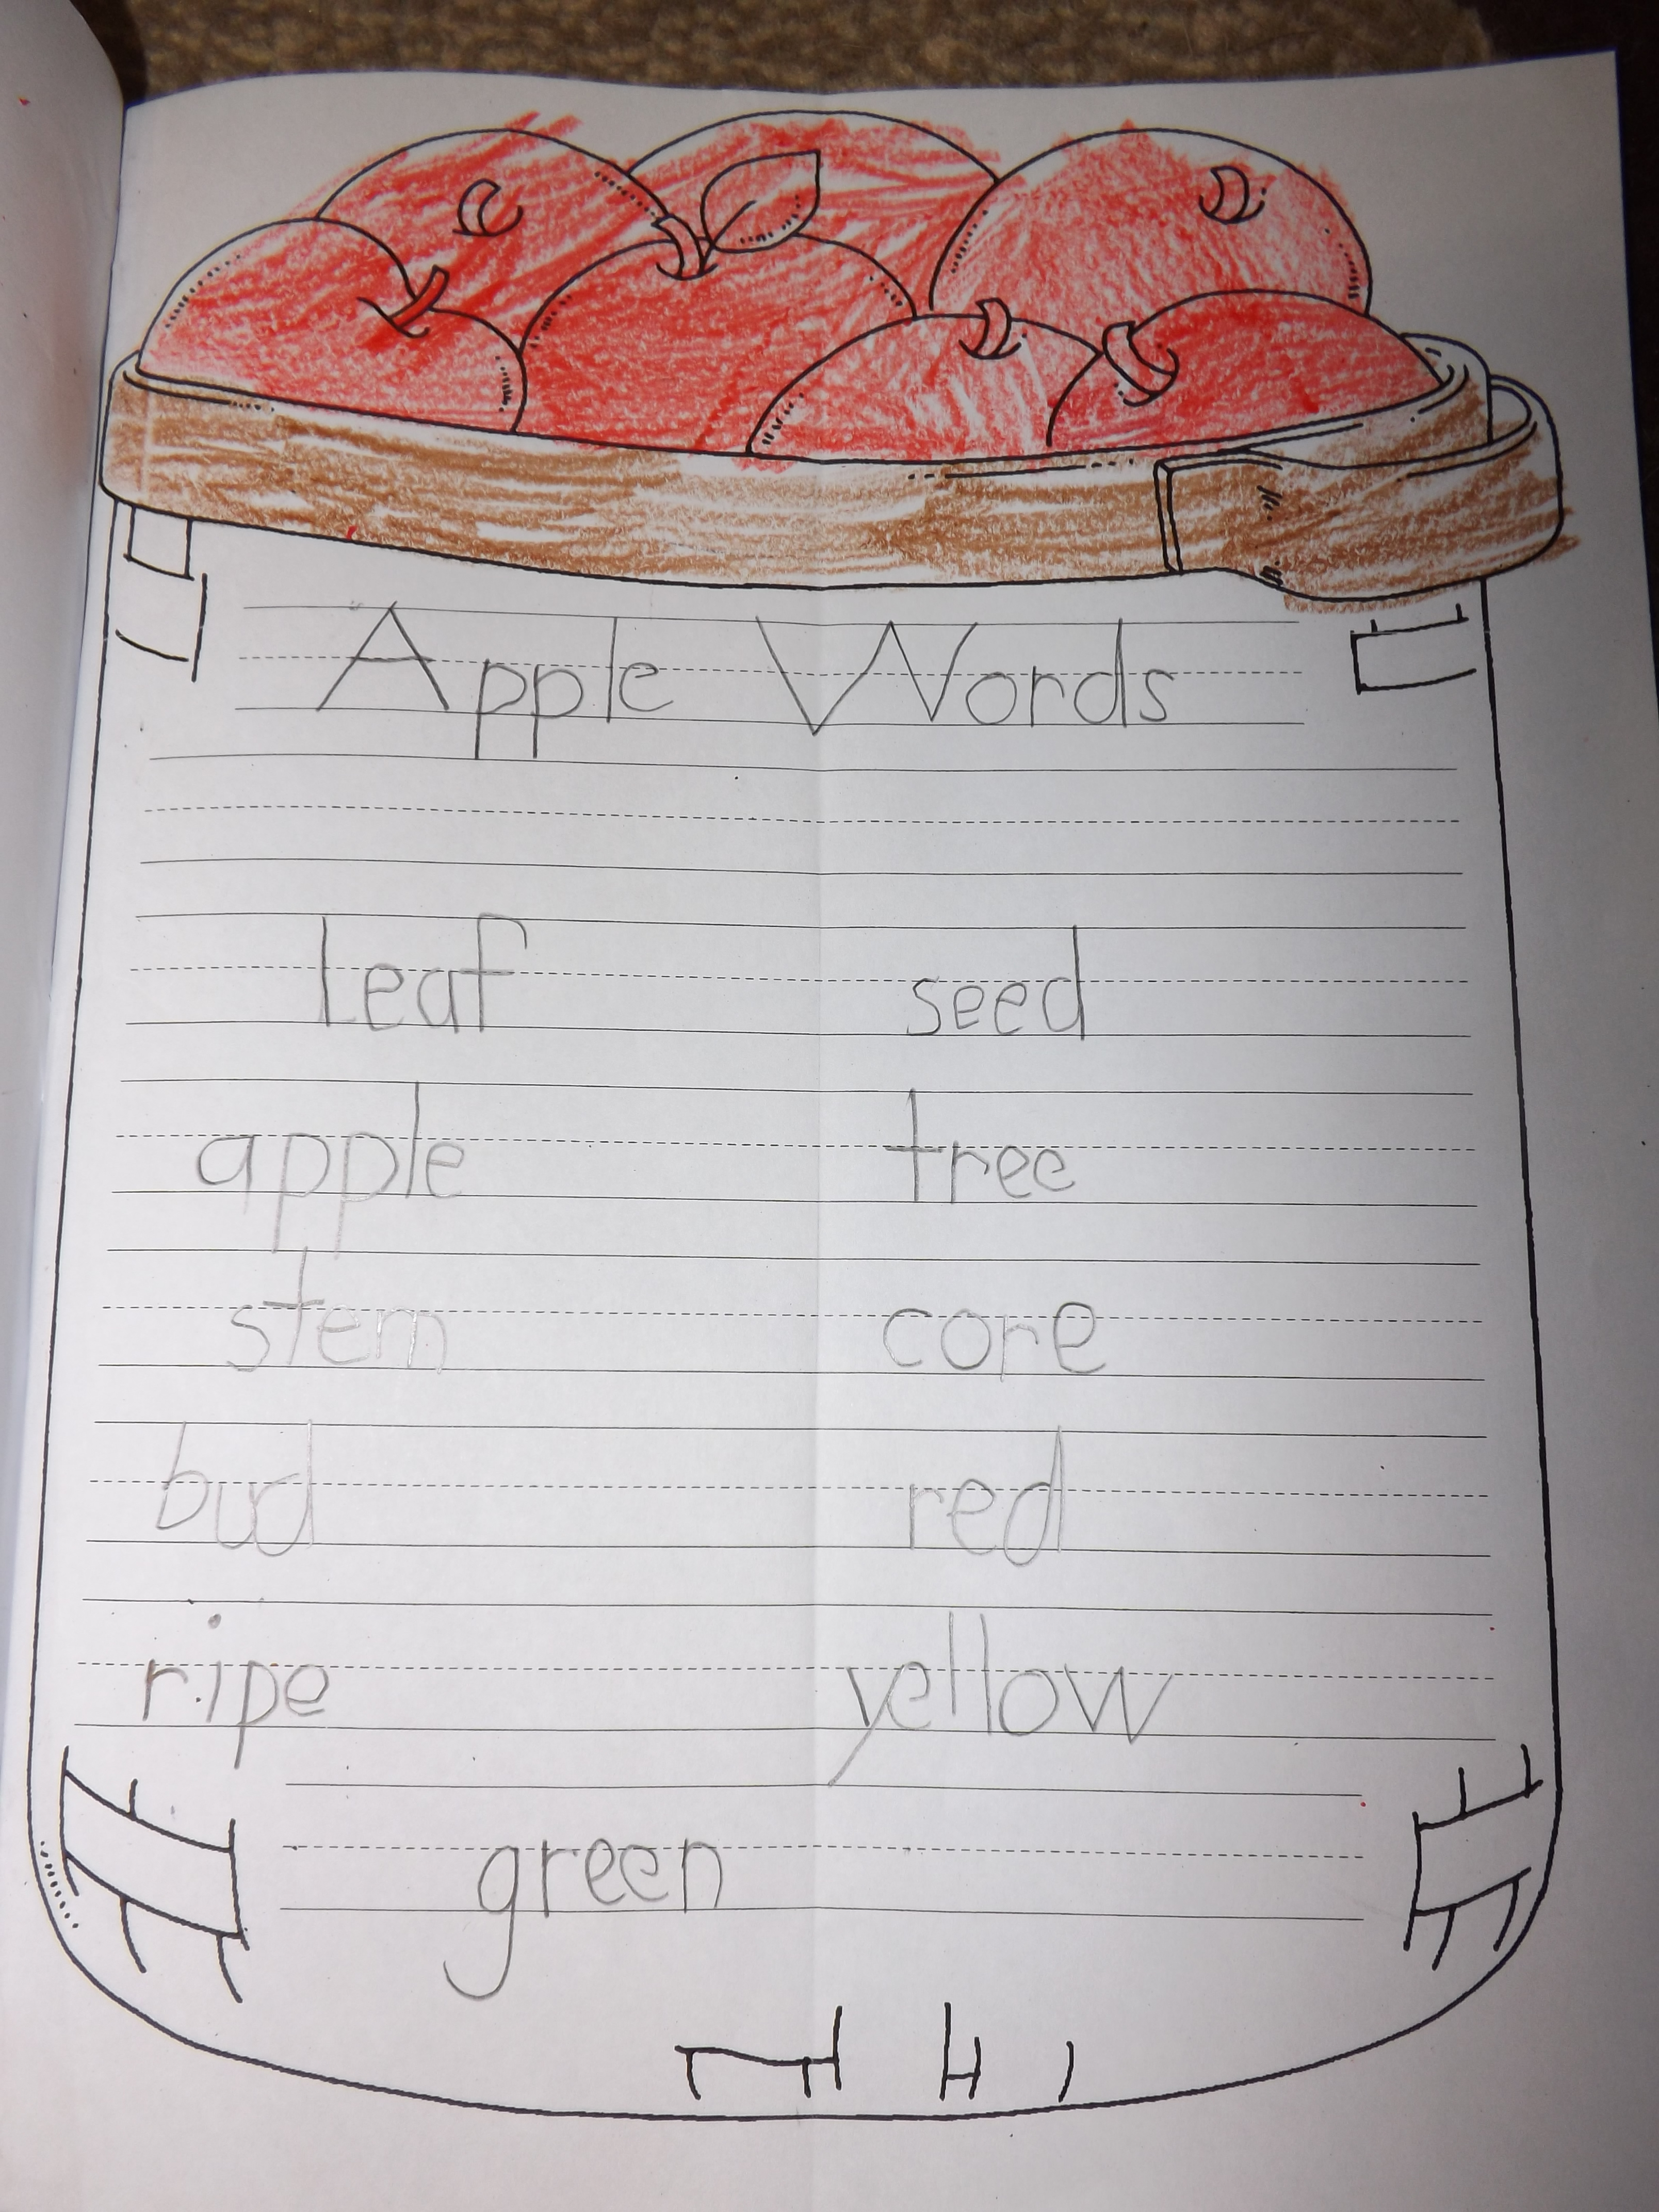 Apple Words
leaf seed
apple tree
stem core
bud red
ripe yellow
green